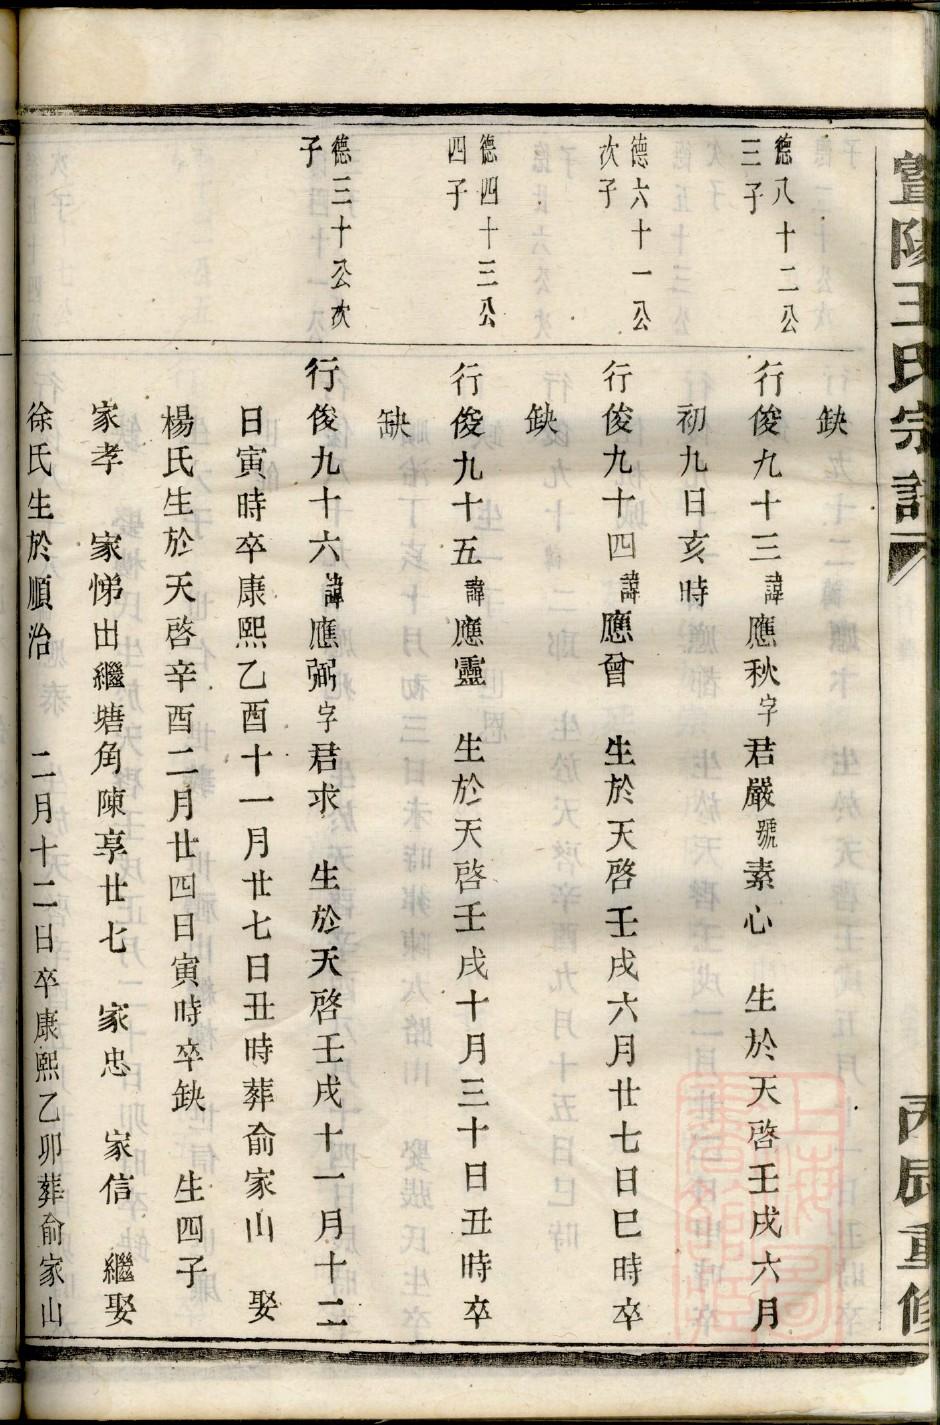 暨陽王氏宗譜
丙辰重修
缺
德八十二公
三子
行俊九十三諱應秋字君嚴號素心 生於天啓壬戌六月
初九日亥時
德六十一公
次子
行俊九十四諱應曾 生於天啓壬戌六月廿七日巳時卒
缺
德四十三公
四子
行俊九十五諱應靈 生於天啓壬戌十月三十日丑時卒
缺
德三十公次
子
行俊九十六諱應弼字君求 生於天啓壬戌十一月十二
日寅時卒康熙乙酉十一月廿七日丑時葬俞家山 娶
楊氏生於天啓辛酉二月廿四日寅時卒缺 生四子
家孝 家悌出繼塘角陳享廿七 家忠 家信 繼娶
徐氏生於順治 二月十二日卒康熙乙卯葬俞家山